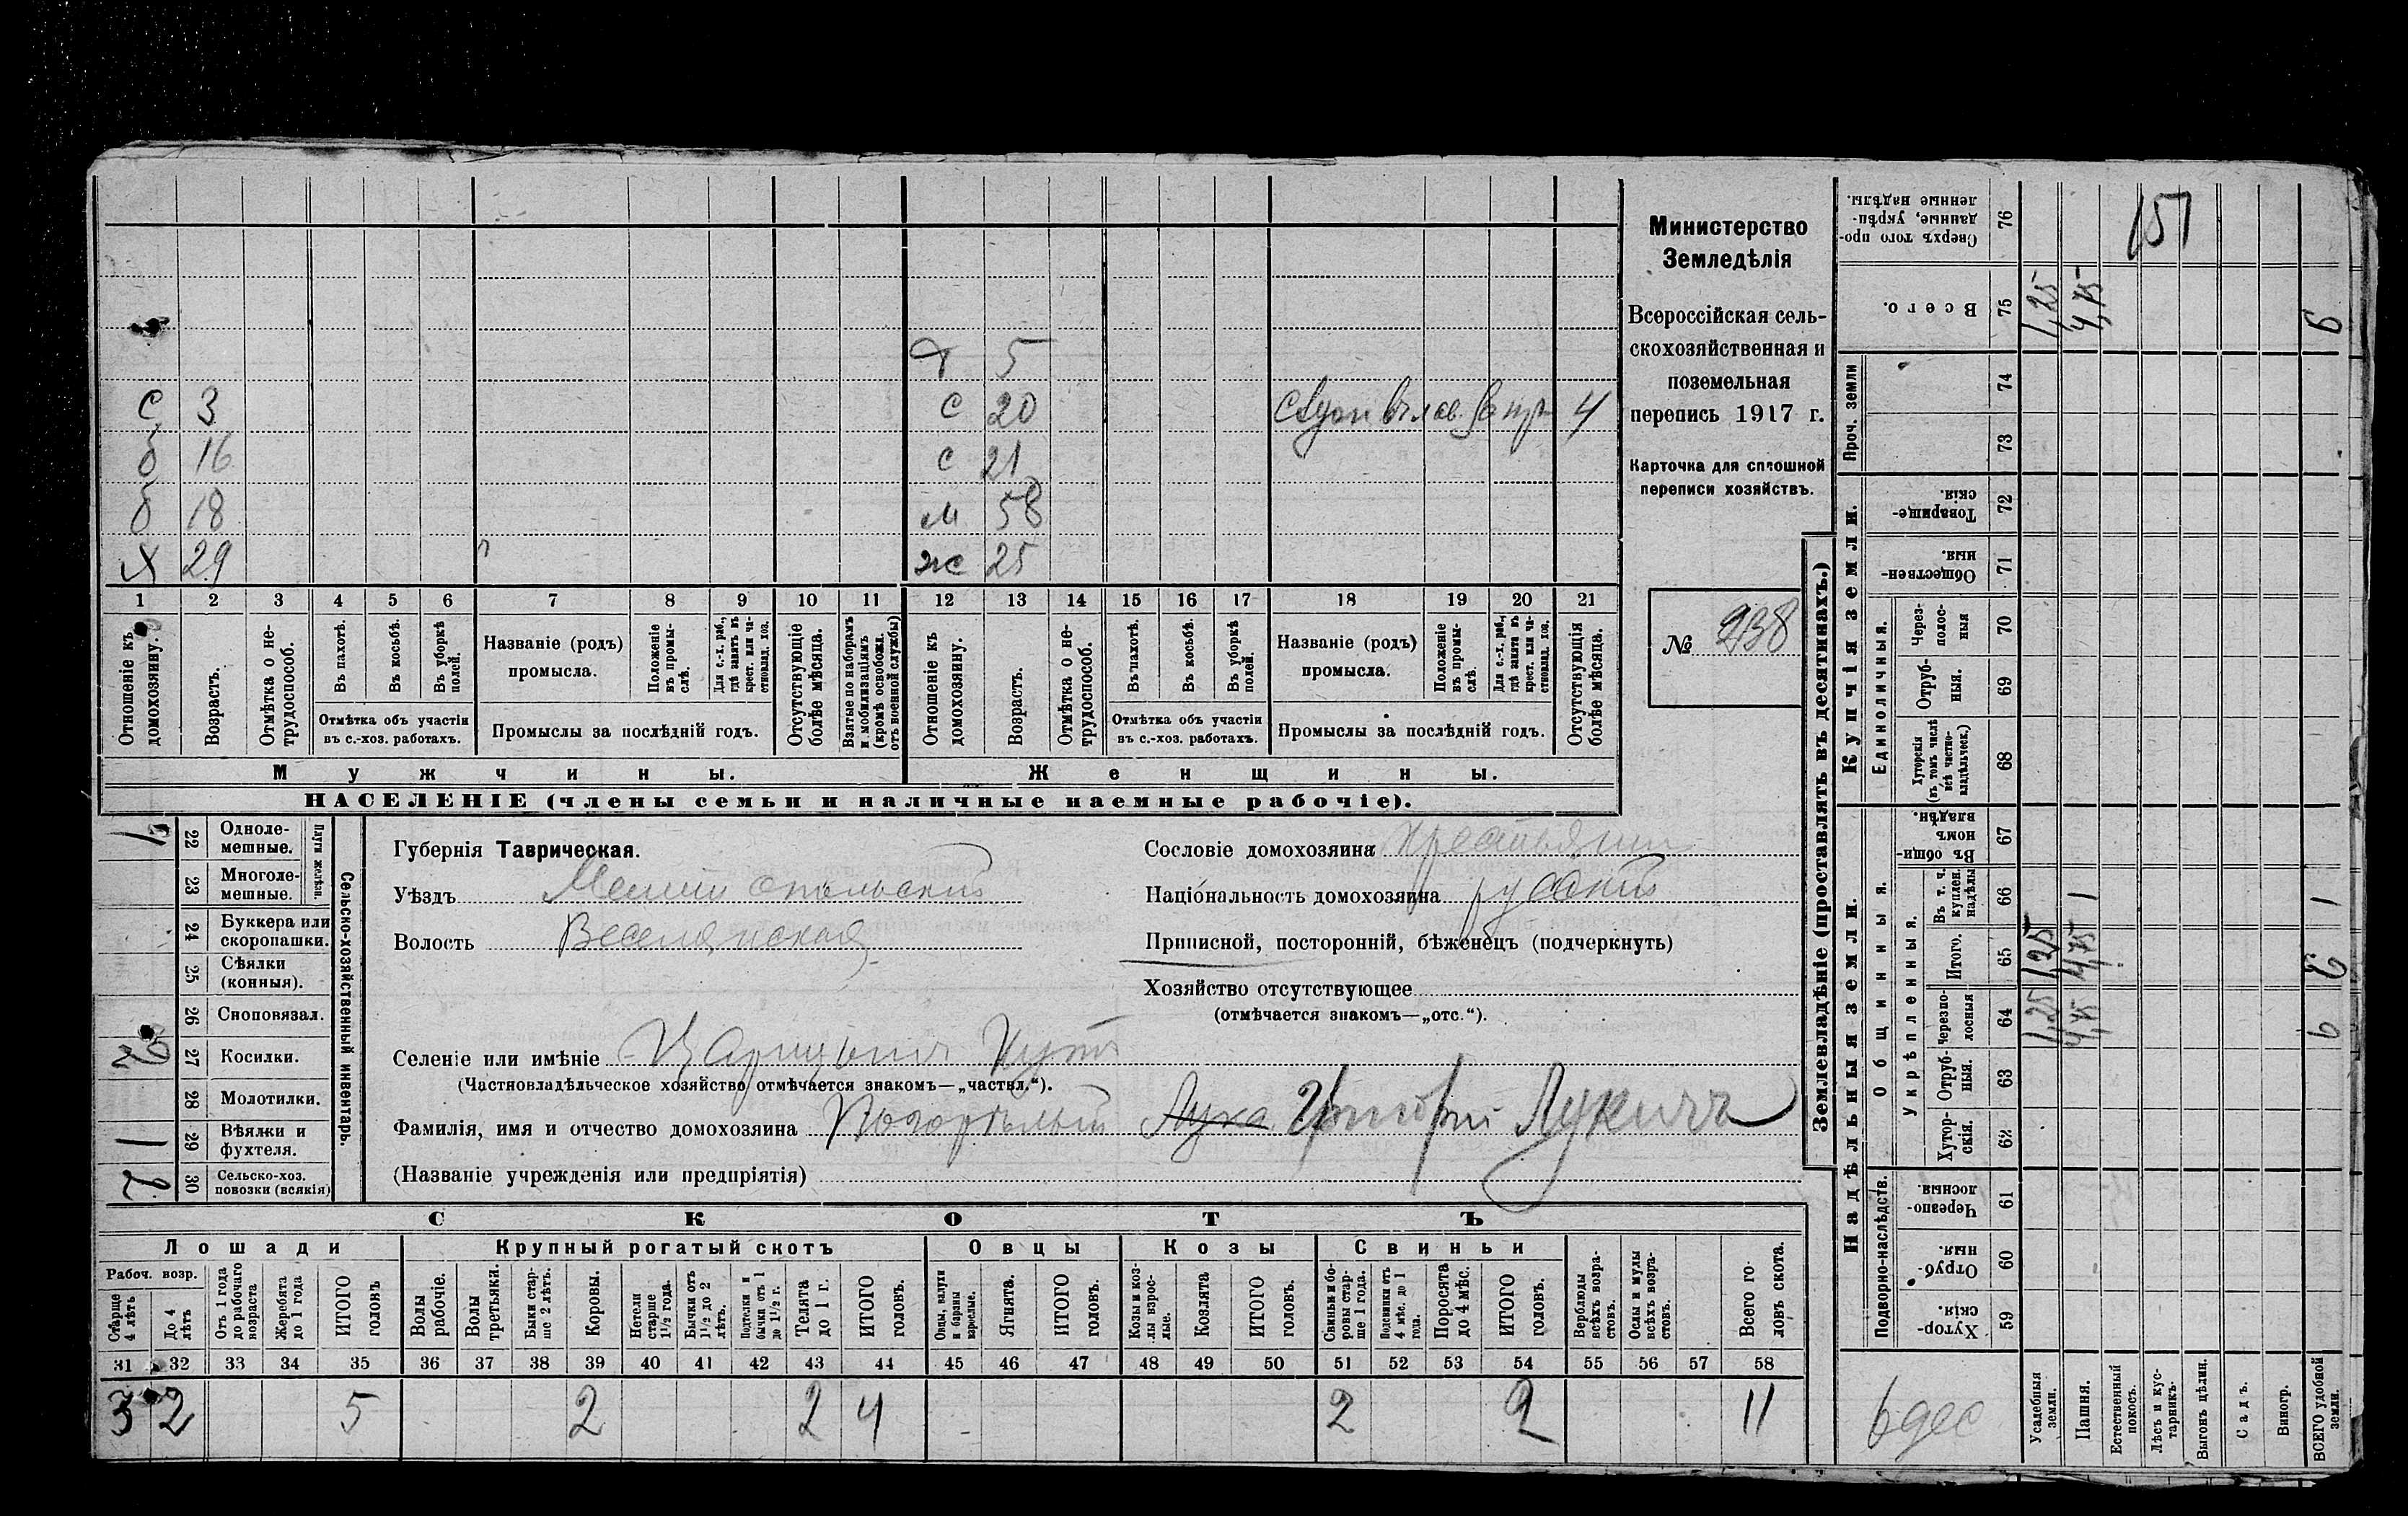 Министерство
Земледѣлія
Всероссійская сель-
скохозяйственная и
поземельная
перепись 1917 г.
Карточка для сплошной
переписи хозяйствъ.
№ 238
5
С 3 С 20 4
б 16 С 21
б 18 м 58
х 29 ж 25
1 2 3 4 5 6 7 8 9 10 11 12 13 14 15 16 17 18 19 20 21
Отношеніе къ домохозяину.
Возрастъ.
Отмѣтка о не-трудоспособ.
Въ пахотѣ.
Въ косьбѣ.
Въ уборкѣ полей.
Отмѣтка объ участіи
въ с.-хоз. работахъ.
Названіе (родъ)
промысла.
Положеніе въ промы-слѣ.
Для с.-х. раб., гдѣ занятъ въ крест. или ча-стновлад. хоз.
Промыслы за послѣдній годъ.
Отсутствующіе болѣе мѣсяца.
Взятые по наборамъ и мобилизаціямъ (кромѣ освобожд. отъ военной службы)
Отношеніе къ домохозяину.
Возрастъ.
Отмѣтка о не-трудоспособ.
Въ пахотѣ.
Въ косьбѣ.
Въ уборкѣ полей.
Отмѣтка объ участіи
въ с.-хоз. работахъ.
Названіе (родъ)
промысла.
Положеніе въ промы-слѣ.
Для с.-х. раб., гдѣ занятъ въ крест. или ча-стновлад. хоз.
Промыслы за послѣдній годъ.
Отсутствующія болѣе мѣсяца.
Мужчины. Женщины.
НАСЕЛЕНІЕ (члены семьи и наличные наемные рабочіе).
Сельско-хозяйственный инвентарь.
Плуги желѣзн.
1 22 Одноле-мешные.
23 Многоле-мешные.
24 Буккера или скоропашки.
25 Сѣялки (конныя).
26 Сноповязал.
27 Косилки.
28 Молотилки.
1 29 Вѣялки и фухтеля.
2 30 Сельско-хоз. повозки (всякія)
Губернія Таврическая.
Уѣздъ Мелитопольскій
Волость Веселянская
Селеніе или имѣніе Царицынъ Кутъ
(Частновладѣльческое хозяйство отмѣчается знакомъ—„частвл.“).
Фамилія, имя и отчество домохозяина Погорѣлый Лука Григорій Лукичъ
(Названіе учрежденія или предпріятія)
Сословіе домохозяина крестьянин
Національность домохозяина русскій
Приписной, посторонній, бѣженецъ (подчеркнуть)
Хозяйство отсутствующее
(отмѣчается знакомъ—„отс.“).
СКОТЪ
Лошади Крупный рогатый скотъ Овцы Козы Свиньи
Рабоч. возр.
Старше 4 лѣтъ
До 4 лѣтъ
Отъ 1 года до рабочаго возраста
Жеребята до 1 года
ИТОГО головъ
Волы рабочіе.
Волы третьяки.
Быки стар-ше 2 лѣтъ.
Коровы.
Нетели старше 1½ года.
Бычки отъ 1½ до 2 лѣтъ.
Подтелки и бычки отъ 1 до 1½ г.
Телята до 1 г.
ИТОГО головъ.
Овцы, валухи и бараны взрослые.
Ягнята.
ИТОГО головъ.
Козы и коз-лы взрос-лые.
Козлята
ИТОГО головъ.
Свиньи и бо-ровы стар-ше 1 года.
Подсвинки отъ 4 мѣс. до 1 года.
Поросята до 4 мѣс.
ИТОГО головъ.
Верблюды всѣхъ возра-стовъ.
Ослы и мулы всѣхъ возра-стовъ.
Всего го-ловъ скота.
31 32 33 34 35 36 37 38 39 40 41 42 43 44 45 46 47 48 49 50 51 52 53 54 55 56 57 58
3 2 5 2 2 4 2 2 11
Землевладѣніе (проставлять въ десятинахъ.)
Надѣльныя земли.
Купчія земли.
Проч. земли
Подворно-наслѣдств.
Общинныя.
Укрѣпленныя.
Единоличныя.
Хутор-скія. 59
Отруб-ныя. 60
Черезпо-лосныя. 61
Хутор-скія. 62
Отруб-ныя. 63
Черезпо-лосныя 64 1,25 4,75 6
Итого. 65 1,25 4,75
Въ т. ч. куплен. надѣлы 66 1 1
Въ общи-номъ владѣн. 67
Хуторскія (въ томъ числѣ всѣ частно-владѣльческ.) 68
Отруб-ныя. 69
Через-полос-ныя 70
Обществен-ныя. 71
Товарище-скія. 72
73
74
Всего. 75 1,25 4,75 6
Сверхъ того про-данные, укрѣп-ленные надѣлы. 76
151
6 дес
Усадебныя земли.
Пашня.
Естественный покосъ.
Лѣсъ и кус-тарникъ.
Выгонъ цѣлин.
Садъ.
Виногр.
ВСЕГО удобной земли.